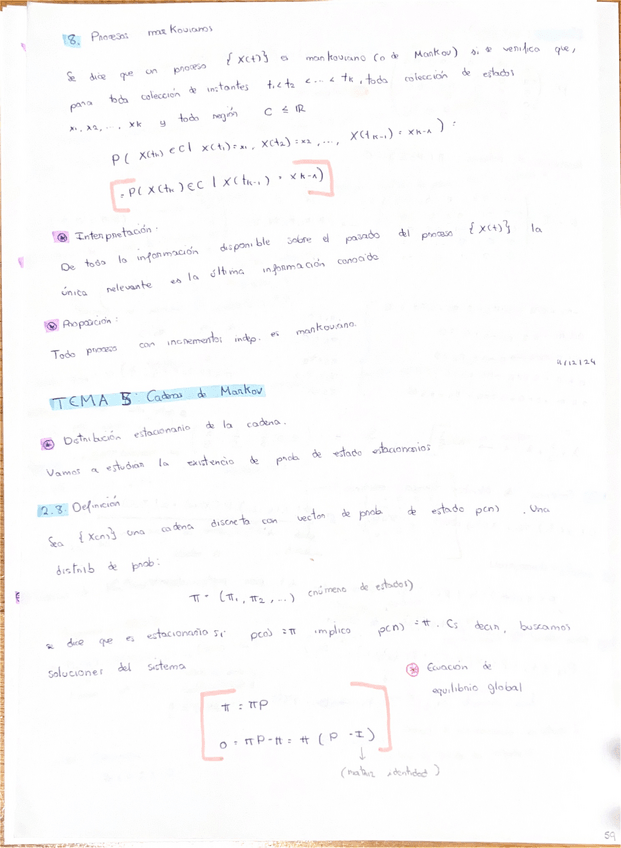 8. Procesos markovianos
Se dice que un proceso { X(t)} es markoviano (o de Markov) si se verifica que,
para toda colección de instantes t₁< t₂ < ... < tₖ, toda colección de estados
x₁, x₂, ..., xₖ y toda región C ≤ ℝ
P( X(tₖ) ∈ C | X(t₁)=x₁, X(t₂)=x₂, ..., X(tₖ₋₁) = xₖ₋₁ ) =
= P( X(tₖ) ∈ C | X(tₖ₋₁) = xₖ₋₁)
Interpretación:
De toda la información disponible sobre el pasado del proceso { X(t)} la
única relevante es la última información conocida
Proposición:
Todo proceso con incrementos indep. es markoviano.
11/12/24
TEMA 5: Cadenas de Markov
Distribución estacionaria de la cadena.
Vamos a estudiar la existencia de prob de estado estacionarios
2.8. Definición
Sea {X(n)} una cadena discreta con vector de prob de estado p(n). Una
distrib de prob:
π = (π₁, π₂, ...) (número de estados)
se dice que es estacionaria si p(0) = π implica p(n) = π. Es decir, buscamos
soluciones del sistema
Ecuación de
equilibrio global
π = πP
0 = πP-π = π (P - I)
↓
(matriz identidad)
59